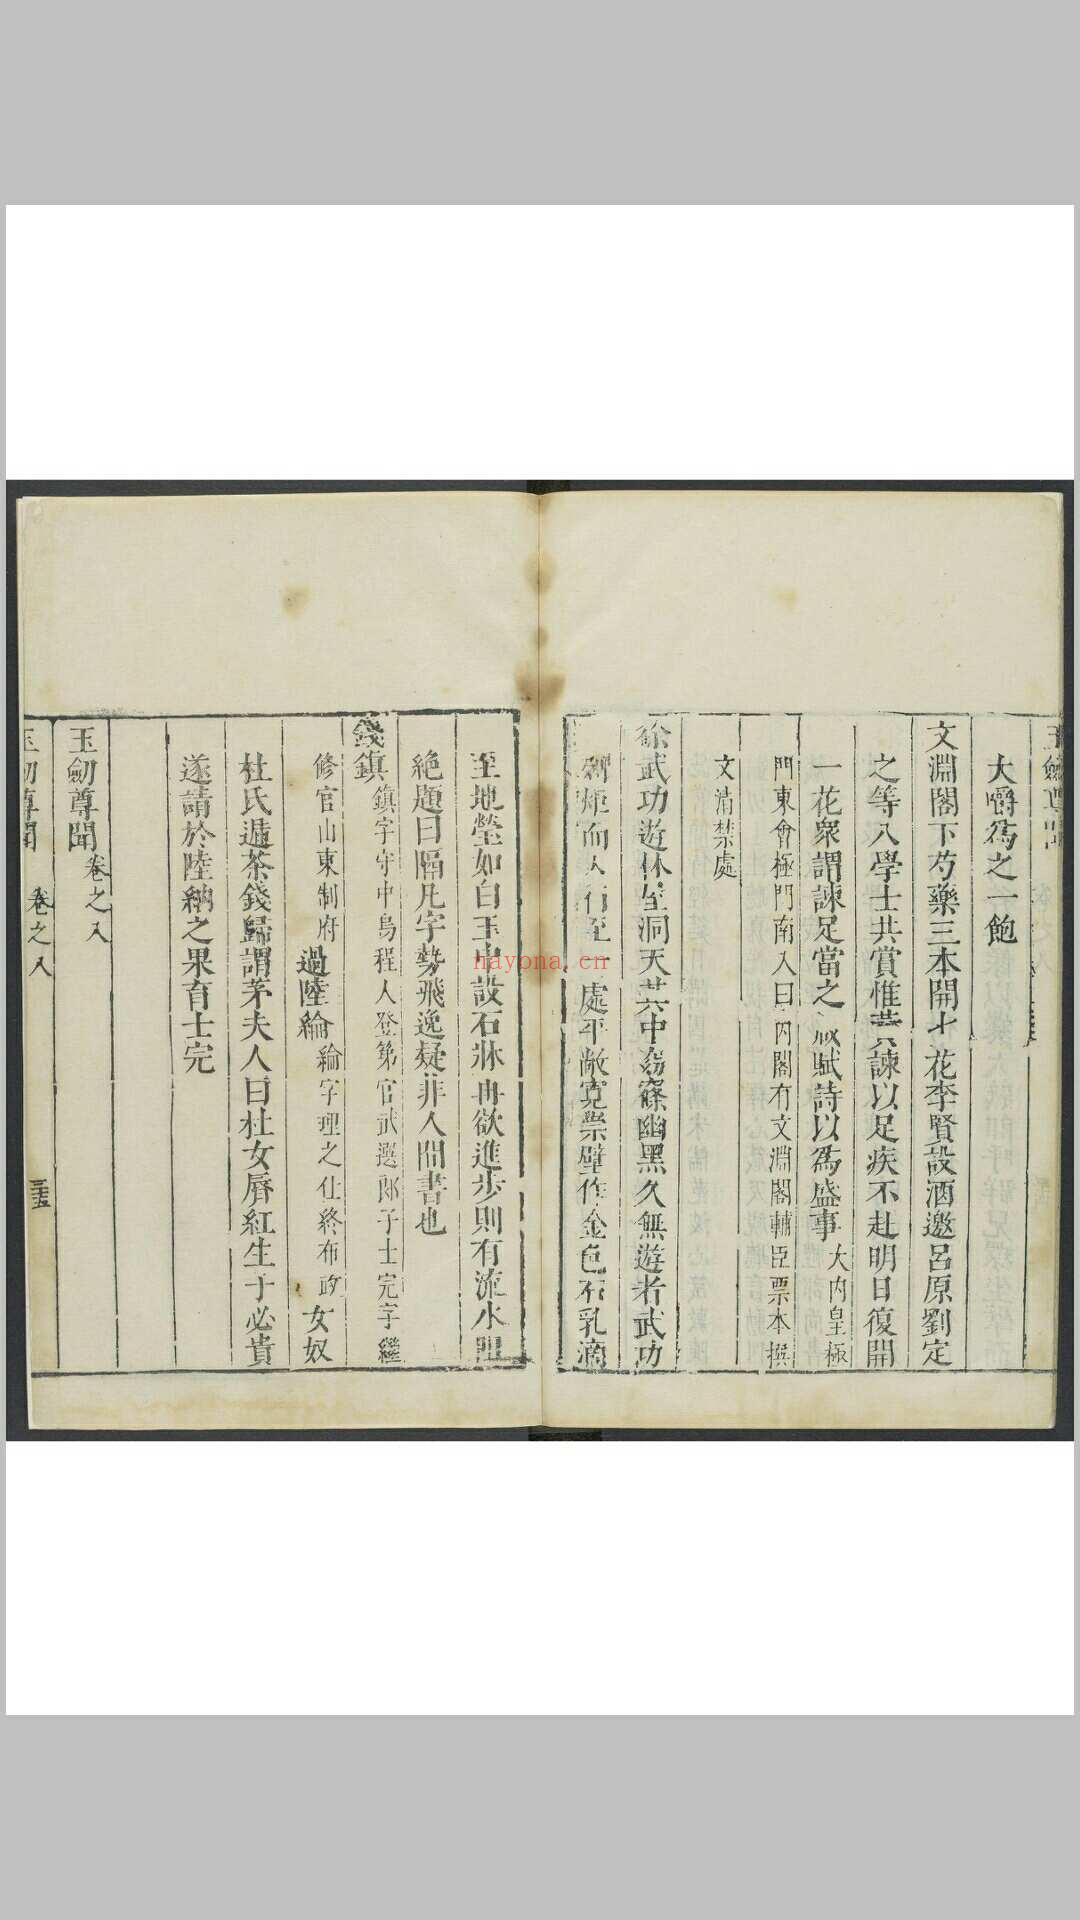 大嚼爲之一飽
文淵閣下芍藥三本開 花李賢設酒邀呂原劉定
之等八學士共賞惟黃諫以足疾不赴明日復開
一花衆謂諫足當之 賦詩以爲盛事 大内皇極
門東會極門南入曰内閣有文淵閣輔臣票本撰
文清禁處
徐武功遊林屋洞天其中窈窱幽黑久無遊者武功
炬而入行至一處平敞寛崇壁作金色石乳滴
至地瑩如白玉中設石牀再欲進步則有流水阻
絶題曰隔凡字勢飛逸疑非人間書也
錢鎮 鎮字守中烏程人登第官武選郎子士完字繼
修官山東制府 過陸綸 綸字理之仕終布政 女奴
杜氏遞茶錢歸謂茅夫人曰杜女脣紅生子必貴
遂請於陸納之果育士完
玉劒尊聞 卷之八 三十五
玉劒尊聞 卷之八
hayona.cn